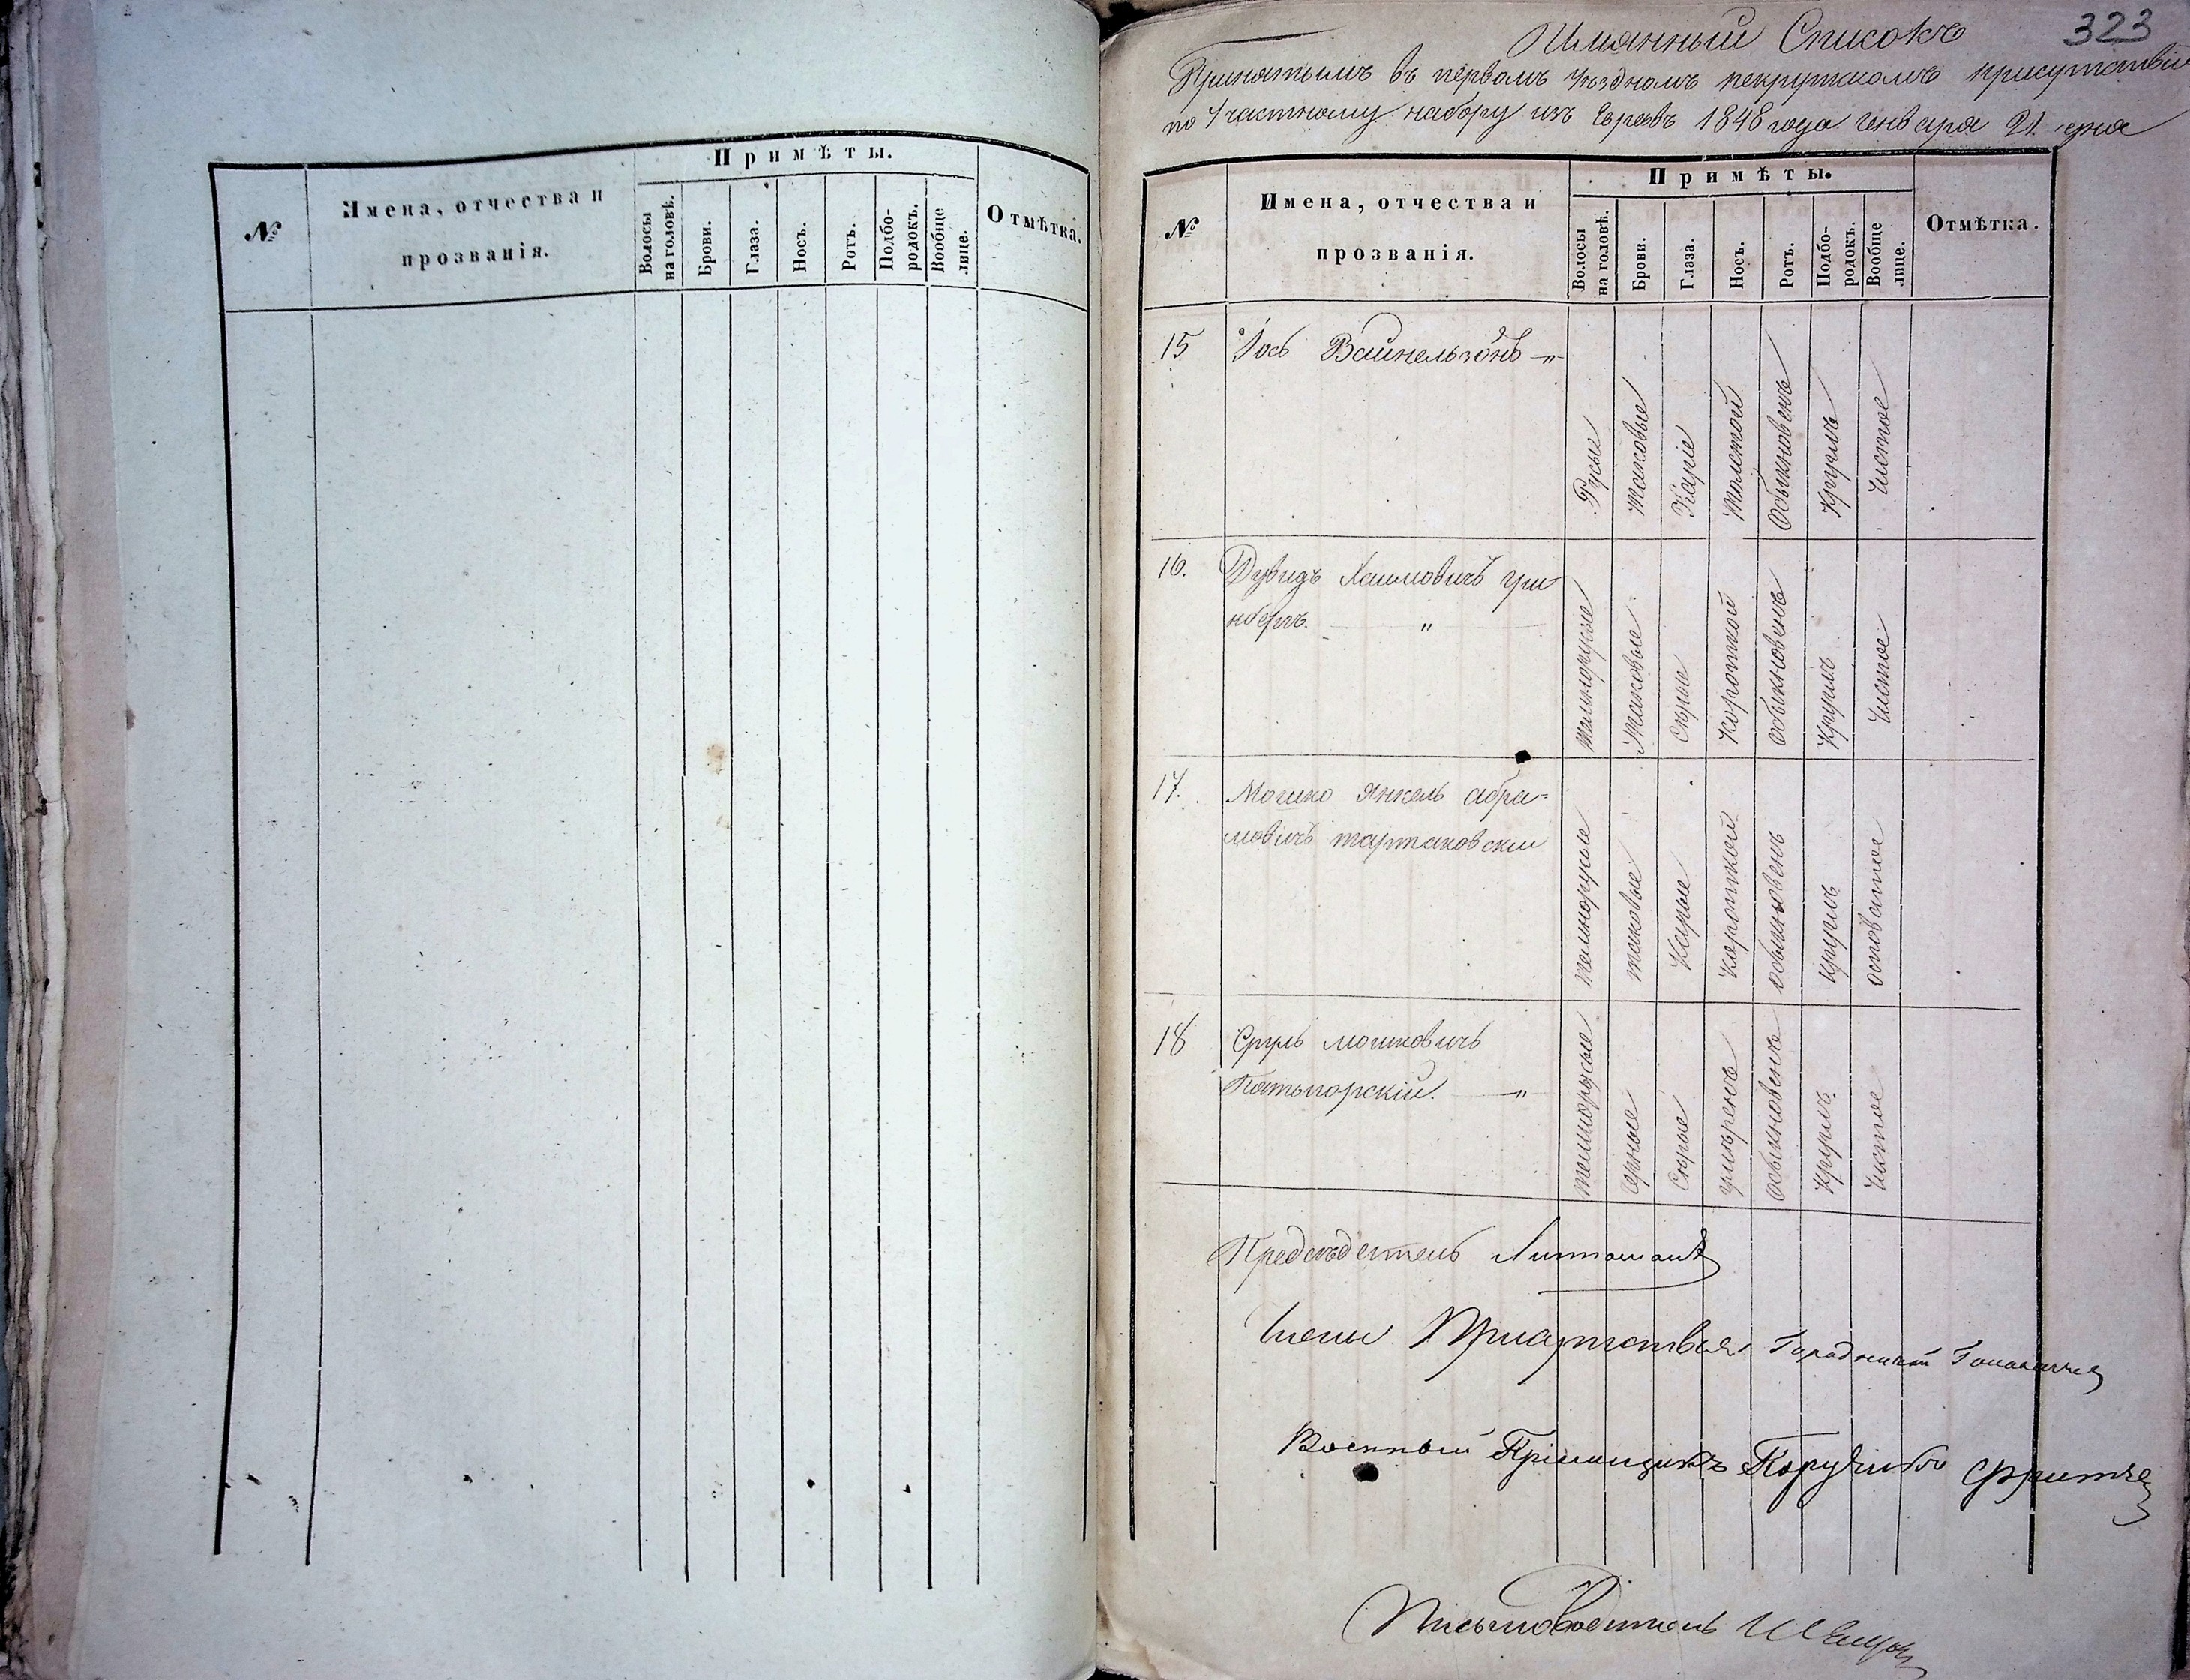 №
Имена, отчества и
прозванія.
Примѣты.
Волосы
на головѣ.
Брови.
Глаза.
Носъ.
Ротъ.
Подбо-
родокъ.
Вообще
лице.
Отмѣтка.
323
Имянный Списокъ
Принятымъ въ первомъ уѣздномъ рекрутскомъ присутствіи
по 1 частному набору изъ Евреевъ 1848 года Генваря 21 дня
№
Имена, отчества и
прозванія.
Примѣты.
Волосы
на головѣ.
Брови.
Глаза.
Носъ.
Ротъ.
Подбо-
родокъ.
Вообще
лице.
Отмѣтка.
15
Іось Вайнельзонъ -„-
Русые
таковые
Каріе
Толстой
Обыкновенъ
Круглъ
Чистое
16.
Дувидъ Хаимовичъ Гри-
нбергъ. „
темнорусые
таковые
Сѣрые
Короткой
обыкновенъ
Круглъ
Чистое
17.
Мошко Янкель Абра-
мовичъ тартаковскій
темнорусые
таковые
Карые
Короткой
обыкновенъ
круглъ
осповатое
18
Сруль мошковичъ
-„
темнорусые
черные
Сѣрые
умѣренъ
обыкновенъ
Круглъ
Чистое
Предсѣдатель
Члены Присутствія Городничій
Военный Пріемщикъ
Письмоводитель